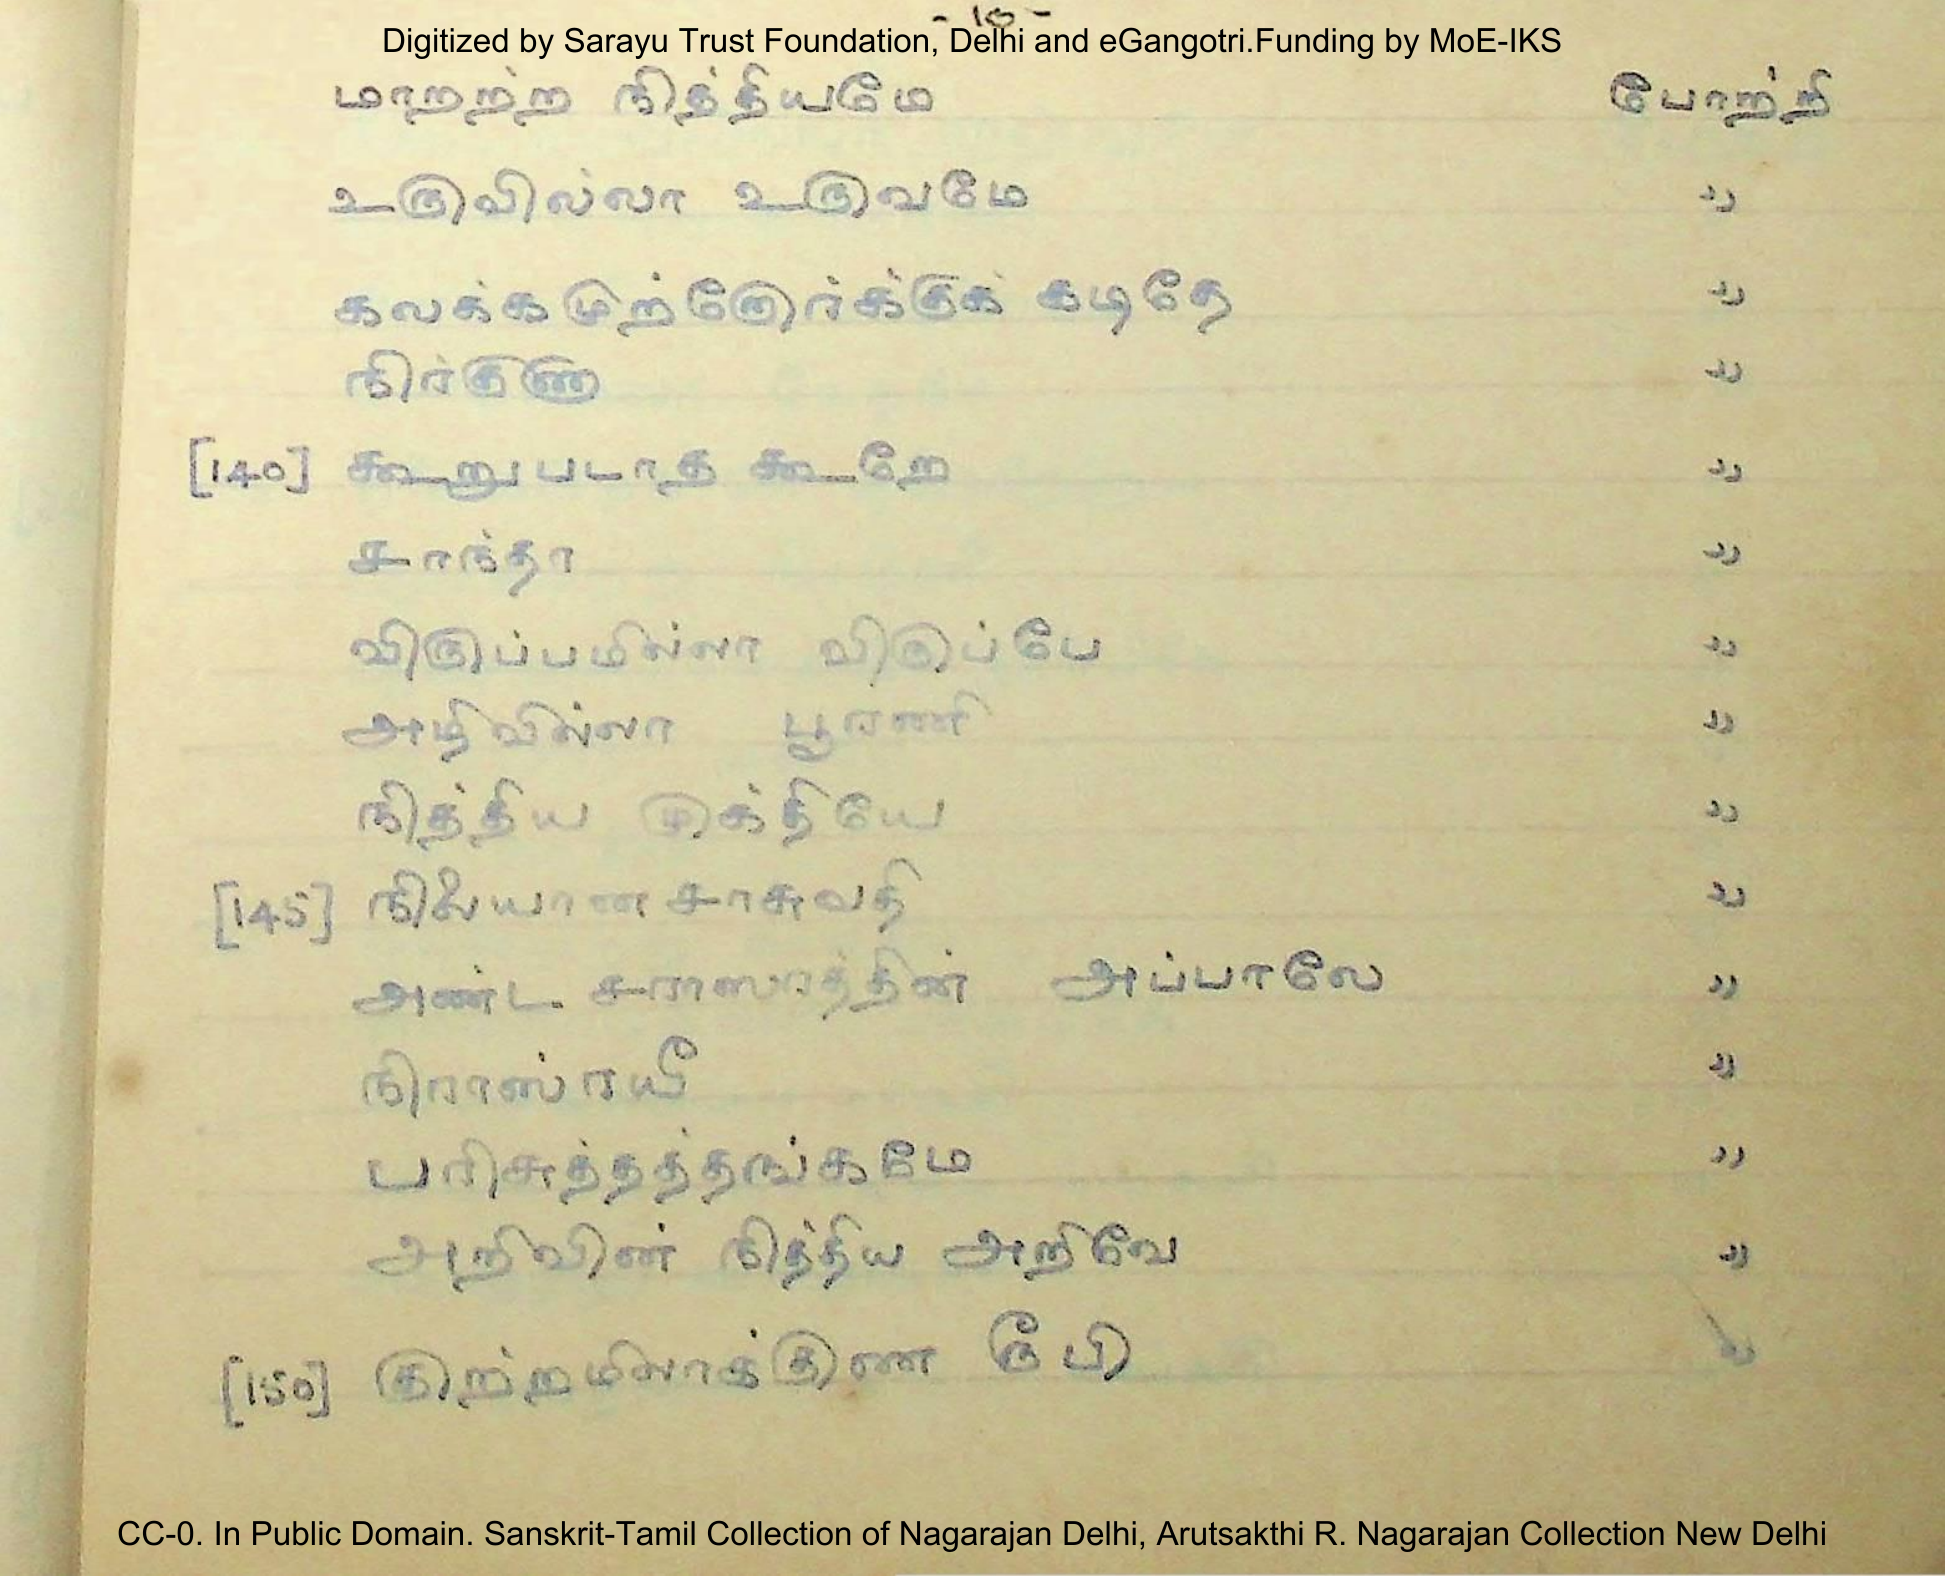 - 10 -
Digitized by Sarayu Trust Foundation, Delhi and eGangotri.Funding by MoE-IKS
மாறற்ற நித்தியமே போற்றி
உருவில்லா உருவமே "
கலக்கமுற்றோர்க்குக் கடிதே "
நிர்குண "
[140] கூறுபடாத கூறே "
சாந்தா "
விருப்பமில்லா விருப்பே "
அழிவில்லா பூரணி "
நித்திய முக்தியே "
[145] நிலையான சாசுவதி "
அண்ட சராஸரத்தின் அப்பாலே "
நிராஸ்ரயீ "
பரிசுத்தத்தங்கமே "
அறிவின் நித்திய அறிவே "
[150] குற்றமிலாக்குண ரூபி "
CC-0. In Public Domain. Sanskrit-Tamil Collection of Nagarajan Delhi, Arutsakthi R. Nagarajan Collection New Delhi